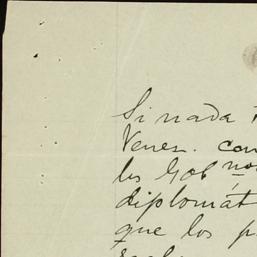 Si nada
Venez. con
los Gob nos
diplomát
que los p